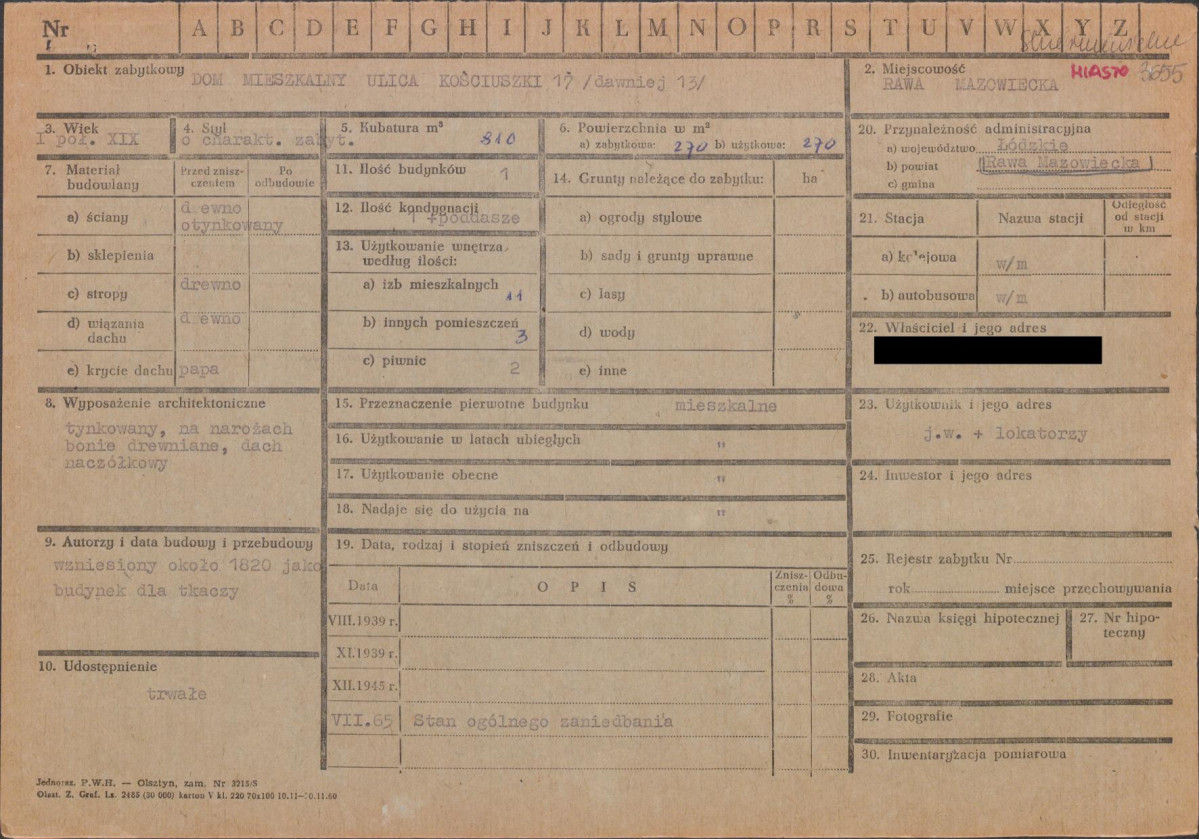 Nr A B C D E F G H I J K L M N O P R S T U V W X Y Z
1. Obiekt zabytkowy DOM MIESZKALNY ULICA KOŚCIUSZKI 17 /dawniej 13/
2. Miejscowość MIASTO 3655
RAWA MAZOWIECKA
3. Wiek
I poł. XIX
4. Styl
o charakt. zabyt.
5. Kubatura m³ 810
6. Powierzchnia w m²
a) zabytkowa: 270 b) użytkowa: 270
20. Przynależność administracyjna
a) województwo Łódzkie
b) powiat Rawa Mazowiecka
c) gmina
7. Materiał budowlany
Przed znisz-czeniem
Po odbudowie
a) ściany drewno
otynkowany
b) sklepienia
c) stropy drewno
d) wiązania dachu drewno
e) krycie dachu papa
11. Ilość budynków 1
12. Ilość kondygnacji
1 +poddasze
13. Użytkowanie wnętrza
według ilości:
a) izb mieszkalnych 11
b) innych pomieszczeń 3
c) piwnic 2
14. Grunty należące do zabytku: ha
a) ogrody stylowe
b) sady i grunty uprawne
c) lasy
d) wody
e) inne
21. Stacja Nazwa stacji Odległość od stacji w km
a) kolejowa w/m
b) autobusowa w/m
22. Właściciel i jego adres
8. Wyposażenie architektoniczne
tynkowany, na narożach
bonie drewniane, dach
naczółkowy
15. Przeznaczenie pierwotne budynku mieszkalne
16. Użytkowanie w latach ubiegłych "
17. Użytkowanie obecne "
18. Nadaje się do użycia na "
23. Użytkownik i jego adres
j.w. + lokatorzy
24. Inwestor i jego adres
9. Autorzy i data budowy i przebudowy
wzniesiony około 1820 jako
budynek dla tkaczy
10. Udostępnienie
trwałe
19. Data, rodzaj i stopień zniszczeń i odbudowy
Data O P I S Znisz-czenia % Odbu-dowa %
VIII.1939 r.
XI.1939 r.
XII.1945 r.
VII.65 Stan ogólnego zaniedbania
25. Rejestr zabytku Nr
rok miejsce przechowywania
26. Nazwa księgi hipotecznej
27. Nr hipo-teczny
28. Akta
29. Fotografie
30. Inwentaryzacja pomiarowa
Jednorsz. P.W.H. — Olsztyn, zam. Nr 3215/S
Olszt. Z. Graf. Lz. 2485 (30 000) karton V kl. 220 70x100 10.11—30.11.60